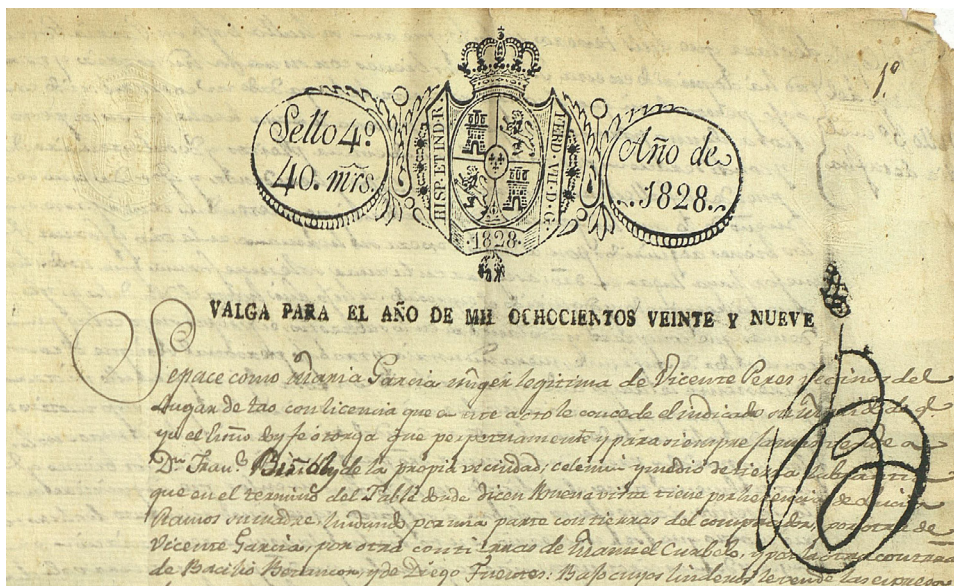 1º
Sello 4º.
40. mrs.
HISP. ET IND. R.
FERD. VII. D. G.
1828.
Año de
1828.
VALGA PARA EL AÑO DE MIL OCHOCIENTOS VEINTE Y NUEVE
Sepace como Maria Garcia muger legitima de Vicente Peres vecinos del
Lugar de tao con licencia que a este acto le concede el indicado su marido de q
yo el Essno doy fe otorga que perpetuamente y para siempre jamas vende a
Dn. Fran.º de la propia vecindad, celemin y medio de tierra
que en el termino del Table donde dicen Buena vista tiene por herencia de
Ramos su madre, lindando por una parte con tierras del comprador, por otra de
Vicente Garcia, por otra con tierras de Manuel Curbelo, y por la otra con
de Bacilio y de Diego Fuentes: Bajo cuyos linderos le vende las